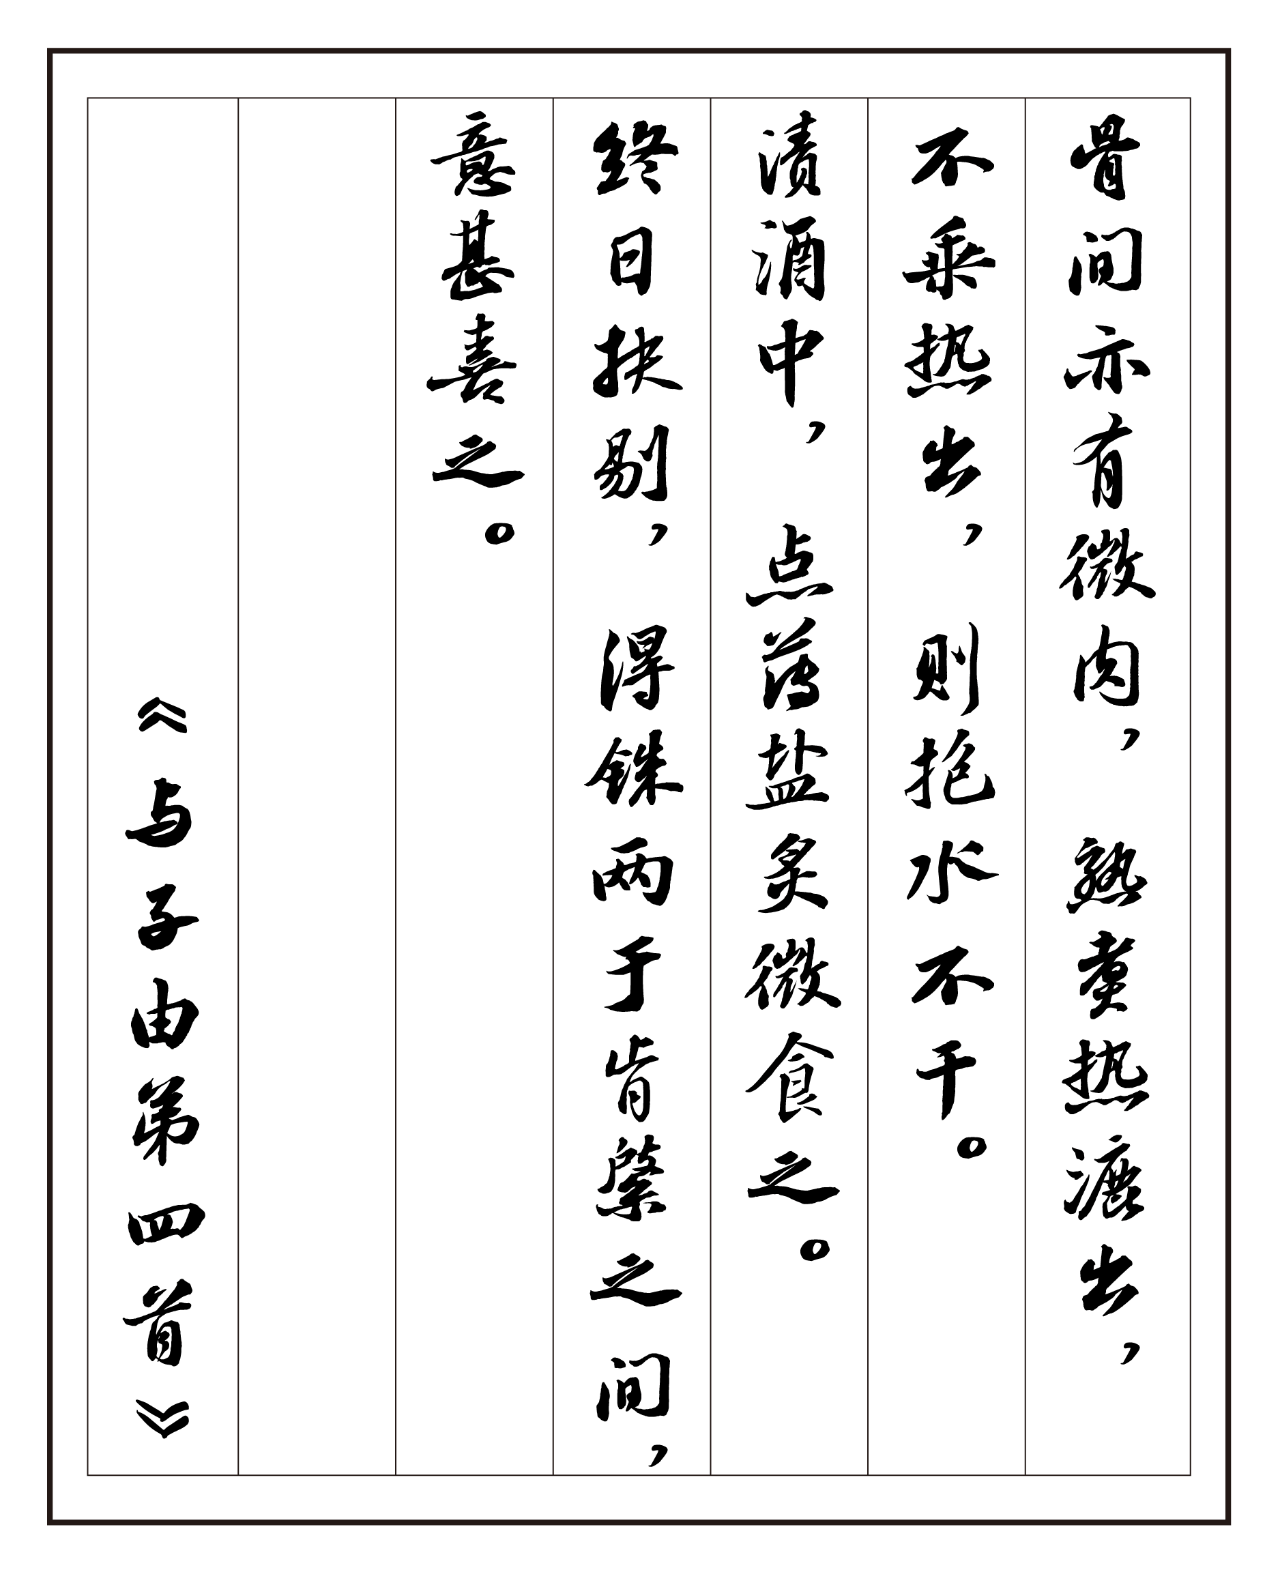 骨间亦有微肉，熟煮热漉出，
不乘热出，则抱水不干。
渍酒中，点薄盐炙微食之。
终日抉剔，得铢两于肯綮之间，
意甚喜之。
《与子由弟四首》